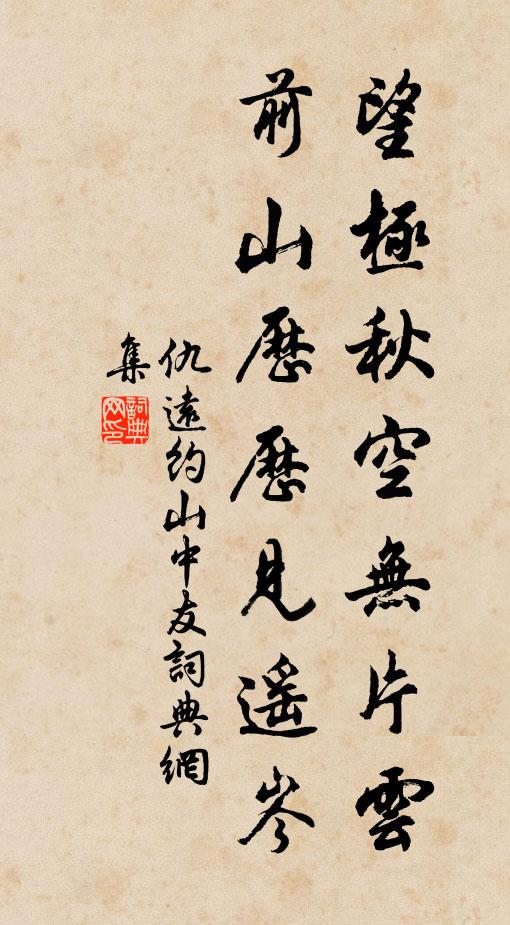 望極秋空無片雲
前山歷歷見遥岑
仇遠約山中友詞典網
集
詞典網印